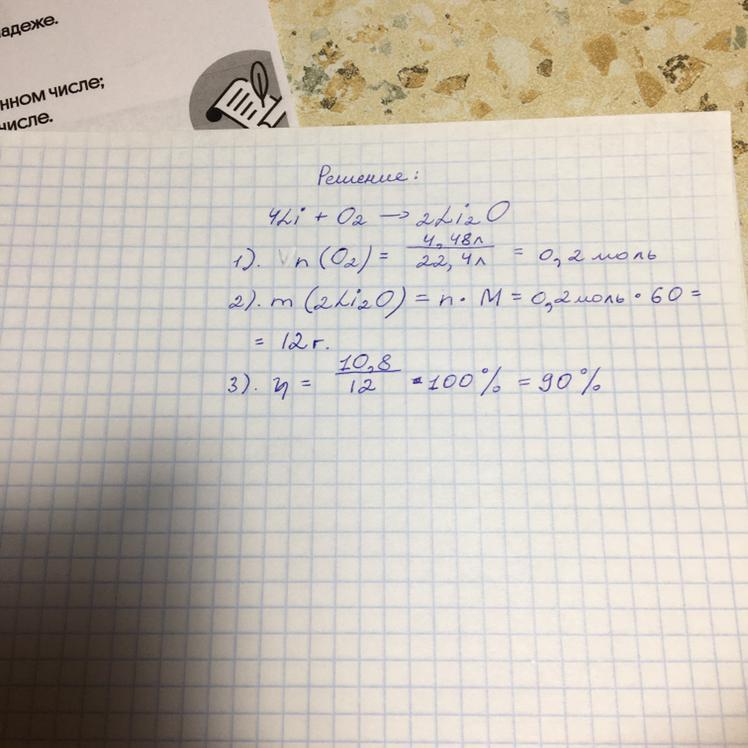 адеже.
нном числе;
числе.
Решение:
4Li + O₂ → 2Li₂O
1). n(O₂) = 4,48л / 22,4л = 0,2 моль
2). m (2Li₂O) = n · M = 0,2моль · 60 =
= 12г.
3). η = 10,8 / 12 · 100% = 90%